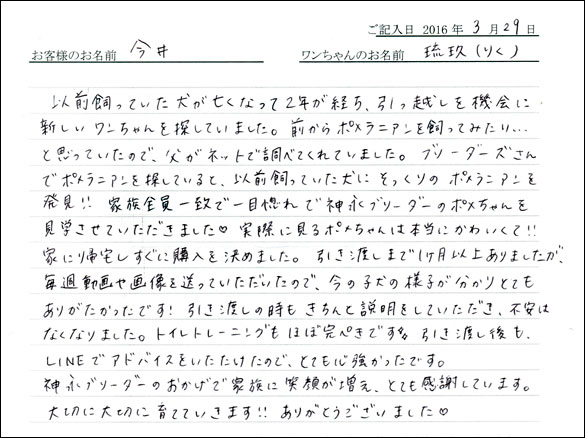 ご記入日 2016 年 3 月 29 日
お客様のお名前 今井 ワンちゃんのお名前 琉玖(りく)
以前飼っていた犬が亡くなって2年が経ち、引っ越しを機会に
新しいワンちゃんを探していました。前からポメラニアンを飼ってみたい…
と思っていたので、父がネットで調べてくれていました。ブリーダーズさん
でポメラニアンを探していると、以前飼っていた犬にそっくりのポメラニアンを
発見!! 家族全員一致で一目惚れで神永ブリーダーのポメちゃんを
見学させていただきました♡ 実際に見るポメちゃんは本当にかわいくて!!
家に帰宅しすぐに購入を決めました。引き渡しまで1ヶ月以上ありましたが、
毎週動画や画像を送っていただいたので、今の子犬の様子が分かりとても
ありがたかったです! 引き渡しの時もきちんと説明をしていただき、不安は
なくなりました。トイレトレーニングもほぼ完ぺきです 引き渡し後も、
LINEでアドバイスをいただけたので、とても心強かったです。
神永ブリーダーのおかげで家族に笑顔が増え、とても感謝しています。
大切に大切に育てていきます!! ありがとうございました♡